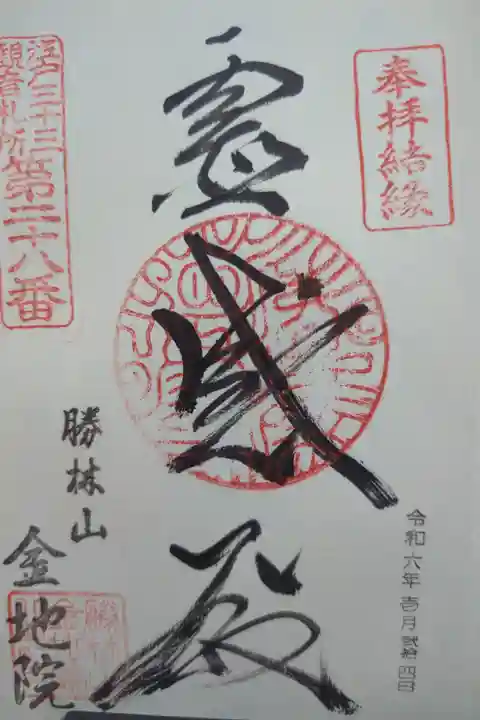 奉拝結縁
霊感殿
令和六年壱月弐拾四日
江戸三十三
観音札所
第二十八番
勝林山
金地院